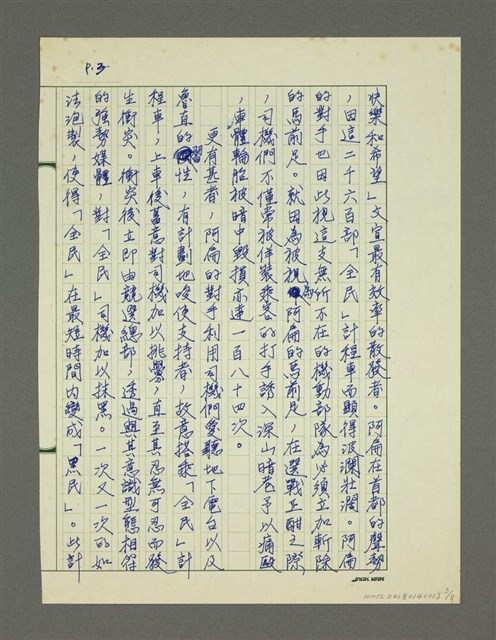 P.3
快樂和希望」文宣最有效率的散發者。阿扁在首都的聲勢
，因這二千六百部「全民」計程車而顯得波瀾壯濶。阿扁
的對手也因此視這支無所不在的機動部隊為必須立加斬除
的馬前足。就因為被視為阿扁的馬前足，在選戰正酣之際
，司機們不僅常被佯裝乘客的打手誘入深山暗巷予以痛毆
，車體輪胎被暗中毀損亦達一百八十四次。
更有甚者，阿扁的對手利用司機們愛聽地下電台以及
魯直的習性，有計劃地唆使支持者，故意搭乘「全民」計
程車，上車後蓄意對司機加以挑釁，直至其忍無可忍而發
生衝突。衝突後立即由競選總部，透過與其意識型態相符
的強勢媒體，對「全民」司機加以抹黑。一次又一次的如
法泡製，使得「全民」在最短時間內變成「黑民」。此計
NMTL20180140013 3/8